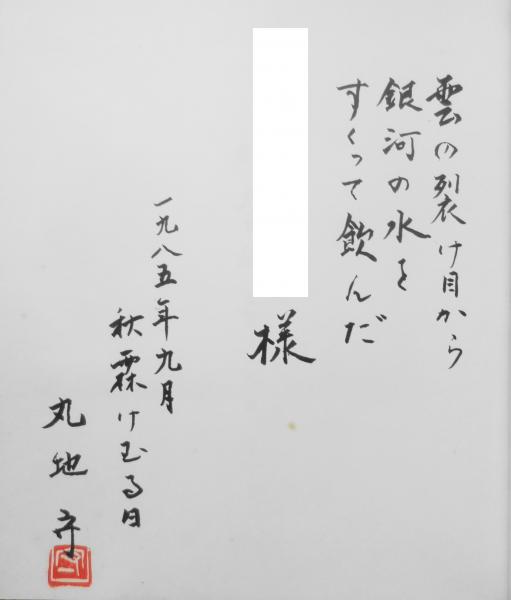 雲の裂け目から
銀河の水を
すくって飲んだ
様
一九八五年九月
秋霖けむる日
丸地守